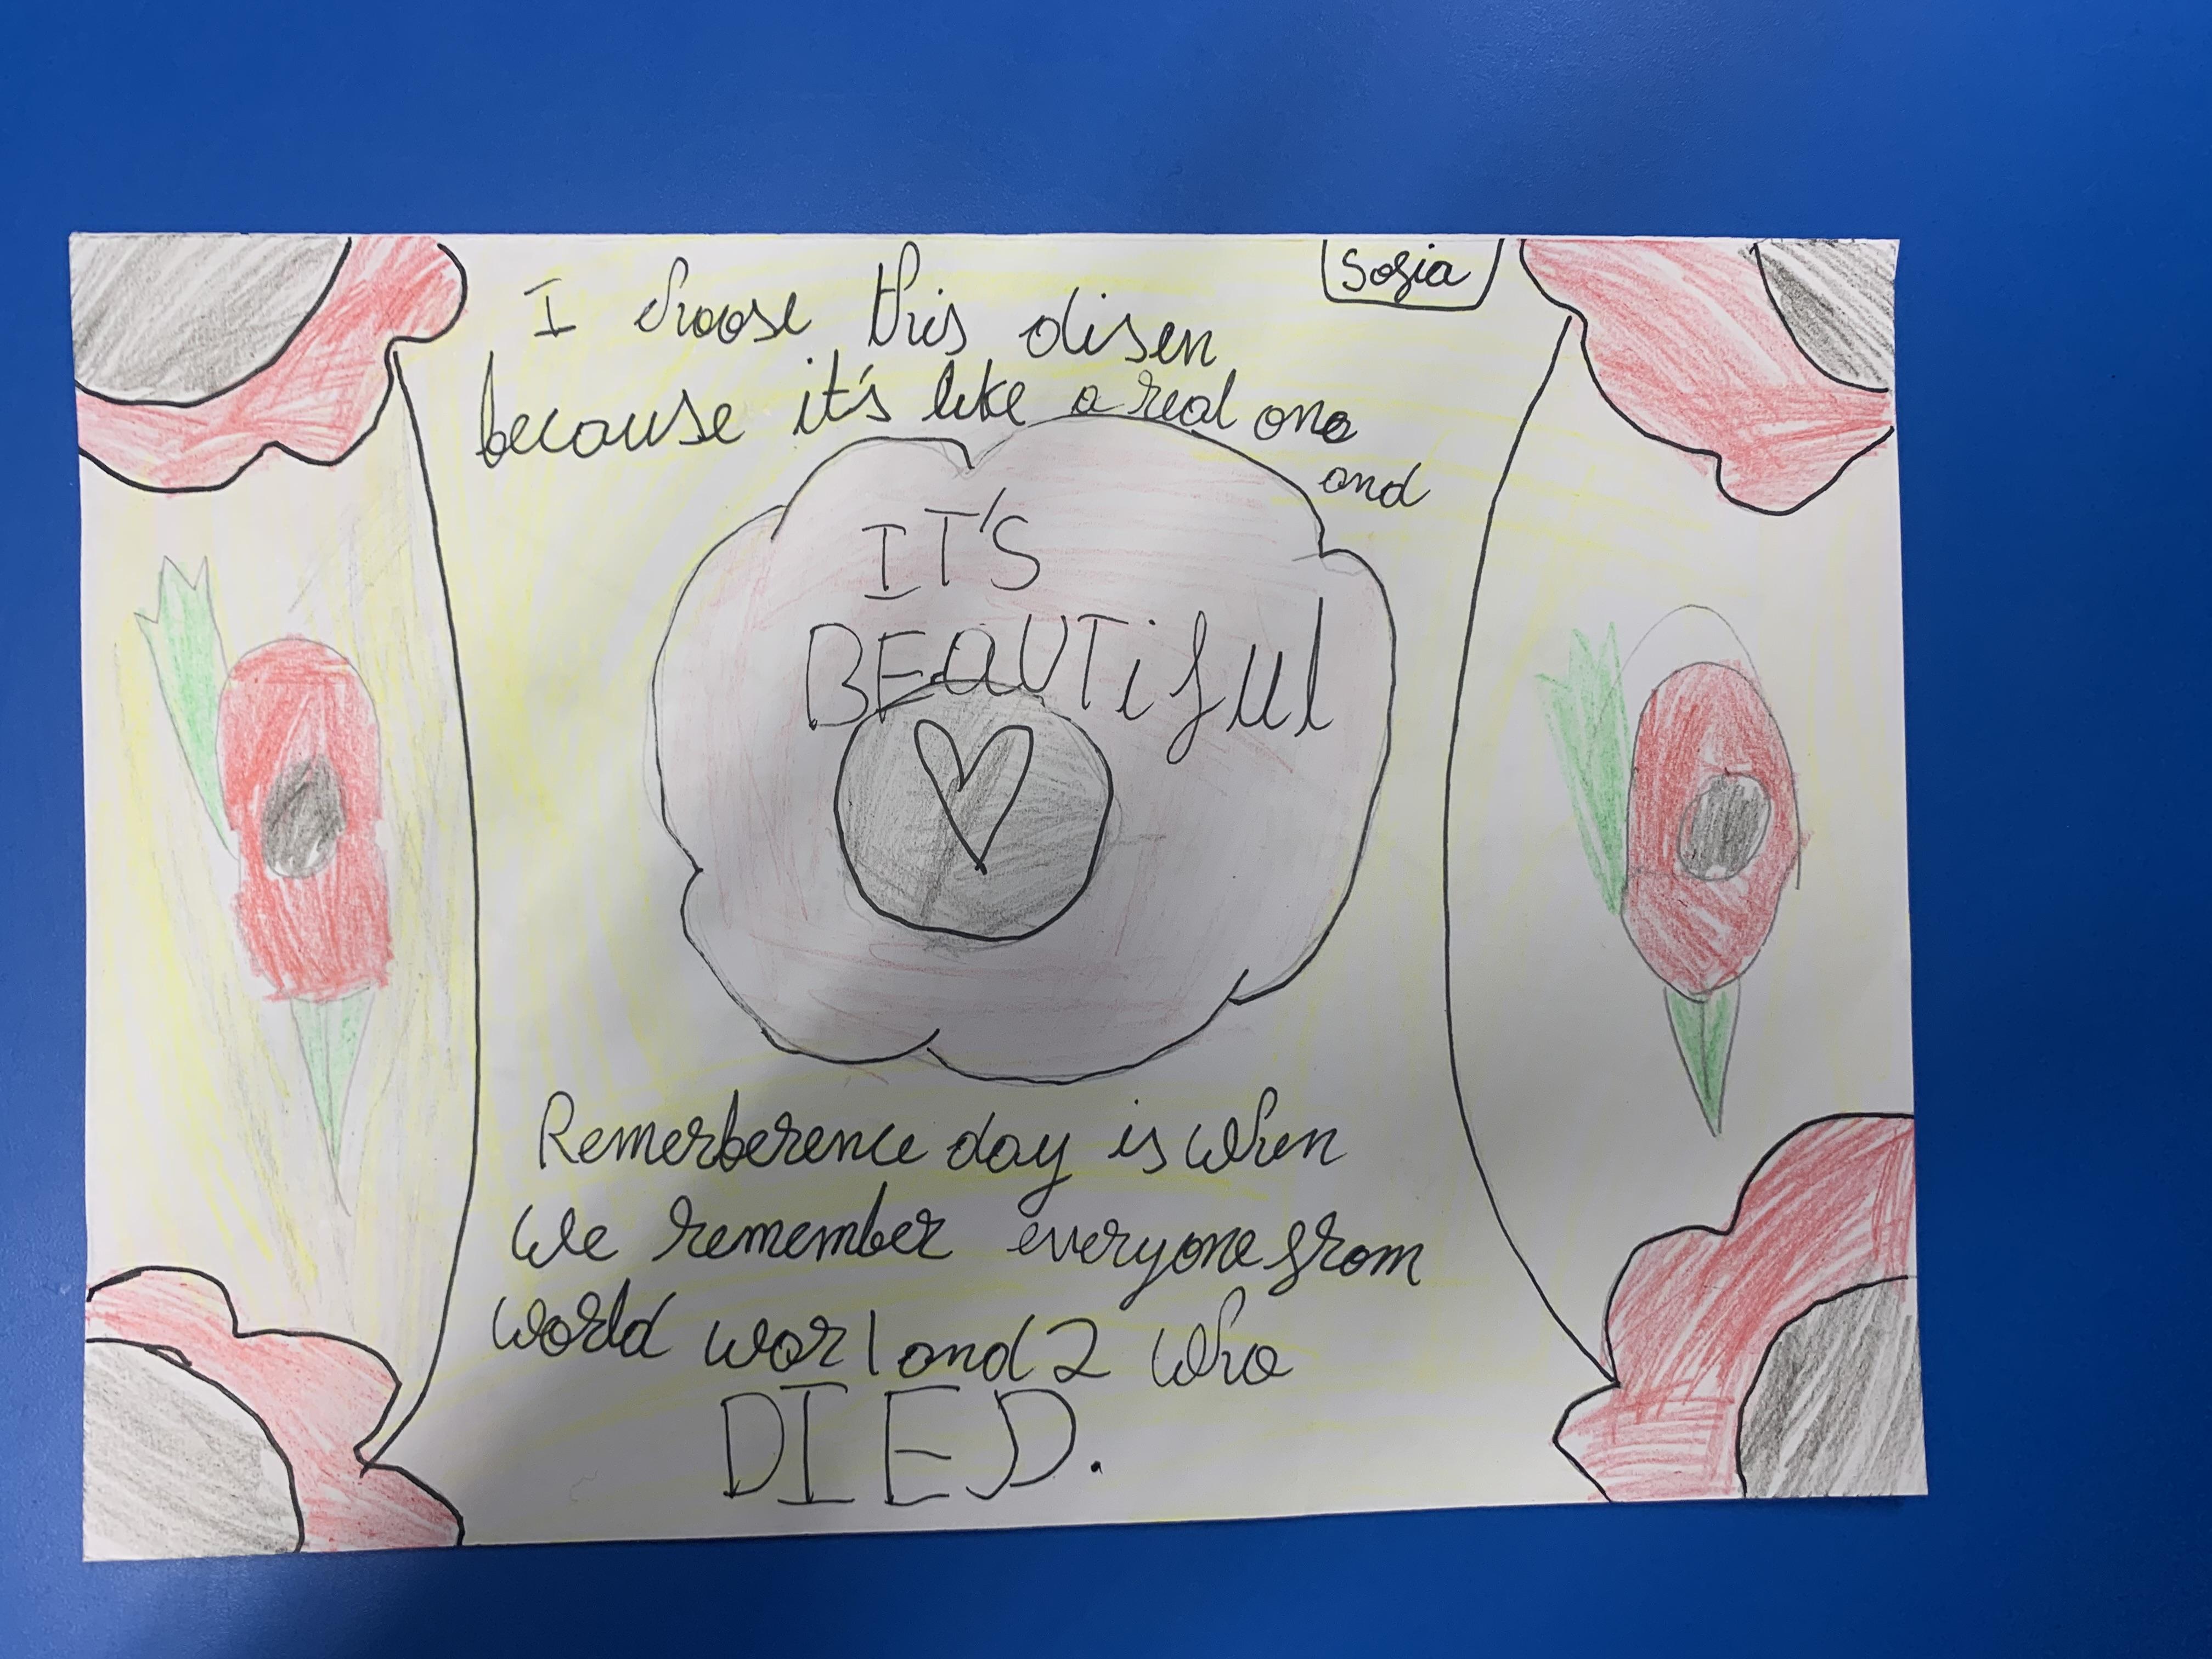 Sofia
I choose this disen
because it's like a real one
and
IT'S
BEAUTiful
Remerberence day is when
we remember everyone from
world war 1 and 2 who
DIED.